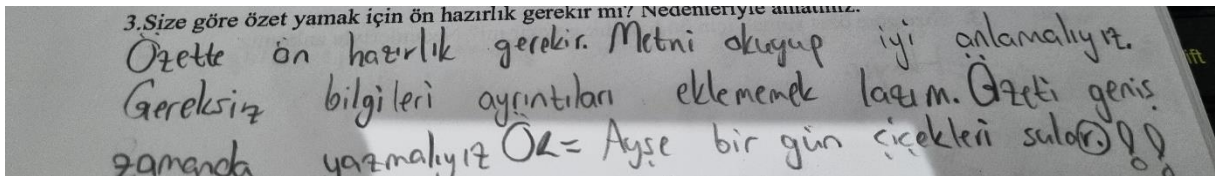 3.Size göre özet yamak için ön hazırlık gerekir mi? Nedenleriyle anlatınız.
Özette ön hazırlık gerekir. Metni okuyup iyi anlamalıyız.
Gereksiz bilgileri ayrıntıları eklememek lazım. Özeti geniş
zamanda yazmalıyız ÖR= Ayşe bir gün çiçekleri sular. !!
ift